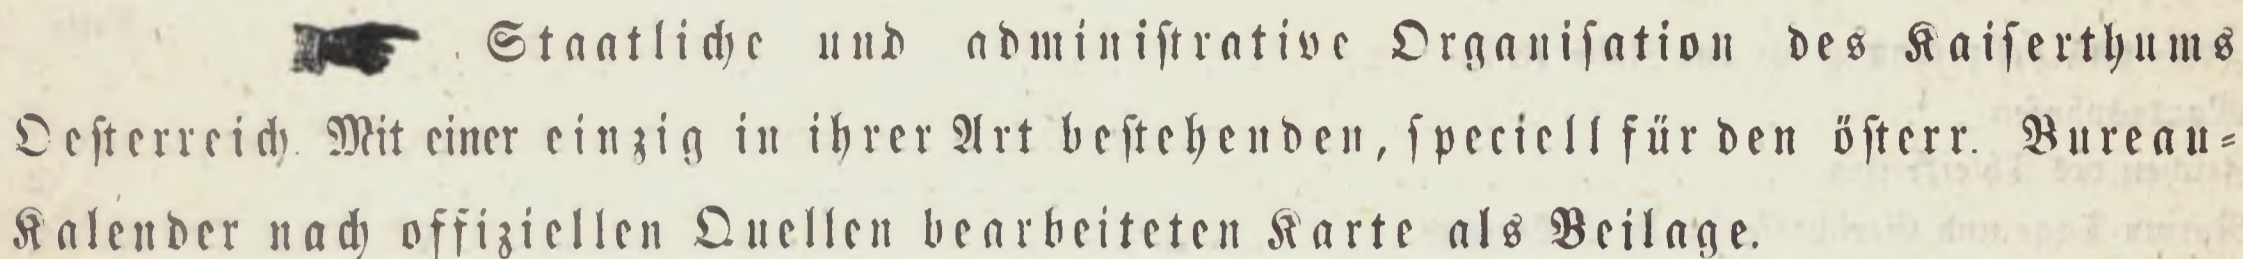 ☛ Staatliche und adminiſtrative Organiſation des Kaiſerthums
Oeſterreich. Mit einer einzig in ihrer Art beſtehenden, ſpeciell für den öſterr. Bureau-
Kalender nach offiziellen Quellen bearbeiteten Karte als Beilage.